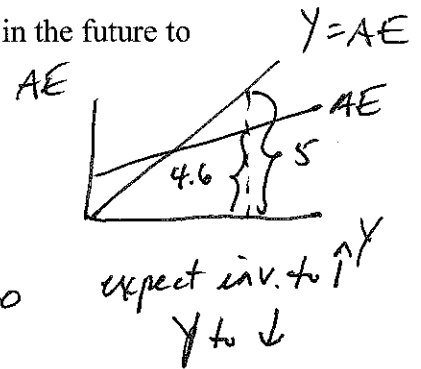 in the future to
Y=AE
AE
AE
4.6
5
Y
o
expect inv. to ↑
Y to ↓